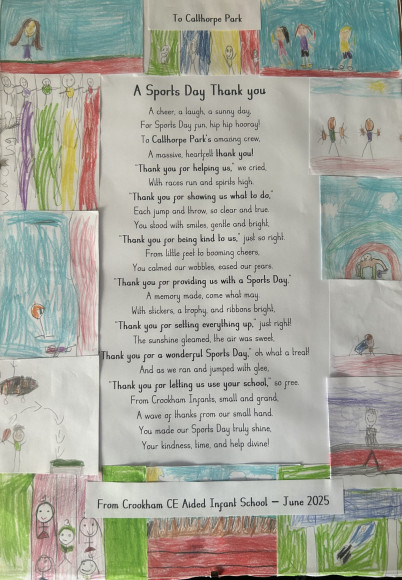 To Callthorpe Park
A Sports Day Thank you
A cheer, a laugh, a sunny day,
For Sports Day fun, hip hip hooray!
To Callthorpe Park's amazing crew,
A massive, heartfelt thank you!
"Thank you for helping us," we cried,
With races run and spirits high.
"Thank you for showing us what to do,"
Each jump and throw, so clear and true.
You stood with smiles, gentle and bright,
"Thank you for being kind to us," just so right.
From little feet to booming cheers,
You calmed our wobbles, eased our fears.
"Thank you for providing us with a Sports Day,"
A memory made, come what may.
With stickers, a trophy, and ribbons bright,
"Thank you for setting everything up," just right!
The sunshine gleamed, the air was sweet,
Thank you for a wonderful Sports Day," oh what a treat!
And as we ran and jumped with glee,
"Thank you for letting us use your school," so free.
From Crookham Infants, small and grand,
A wave of thanks from our small hand.
You made our Sports Day truly shine,
Your kindness, time, and help divine!
From Crookham CE Aided Infant School – June 2025